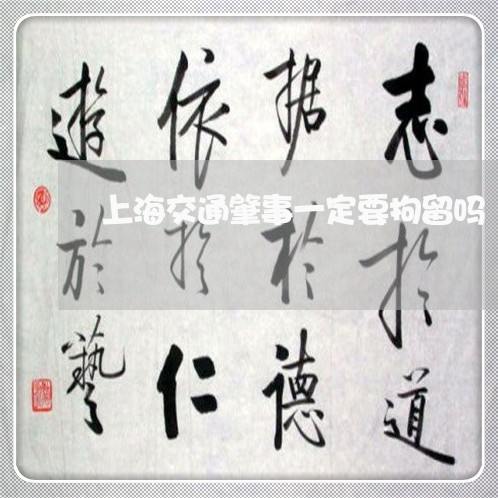 志扵道
据扵德
依扵仁
遊於藝
上海交通肇事一定要拘留吗